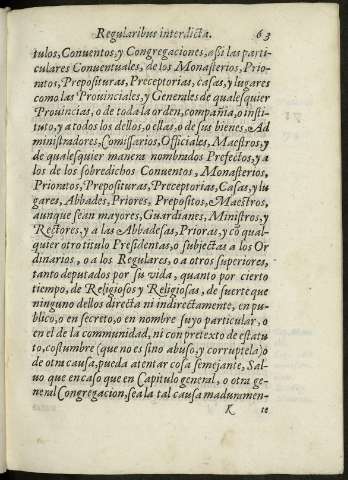 Regularibus interdicta. 63
tulos, Conuentos, y Congregaciones, assi las parti-
culares Conuentuales, de los Monasterios, Prio-
ratos, Preposituras, Preceptorias, casas, y lugares
como las Prouinciales, y Generales de qualesquier
Prouincias, o de toda la orden, compañia, o insti-
tuto, y a todos los dellos, o ellas, o de sus bienes, Ad
ministradores, Comissarios, Officiales, Maestros, y
de qualesquier manera nombrados Prefectos, y a
los de los sobredichos Conuentos, Monasterios,
Prioratos, Preposituras, Preceptorias, Casas, y lu
gares, Abbades, Priores, Prepositos, Maestros,
aunque sean mayores, Guardianes, Ministros, y
Rectores, y a las Abbadesas, Prioras, y cõ qual-
quier otro titulo Presidentas, o subjectas a los Or
dinarios, o a los Regulares, o a otros superiores,
tanto deputados por su vida, quanto por cierto
tiempo, de Religiosos y Religiosas, de suerte que
ninguno dellos directa ni indirectamente, en pu-
blico, o en secreto, o en nombre suyo particular, o
en el de la communidad, ni con pretexto de estatu
to, costumbre (que no es sino abuso, y corruptela) o
de otra causa, pueda atentar cosa semejante, Sal-
uo que en caso que en Capitulo general, o otra ge-
neral Congregacion, sea la tal causa maduramen-
K te